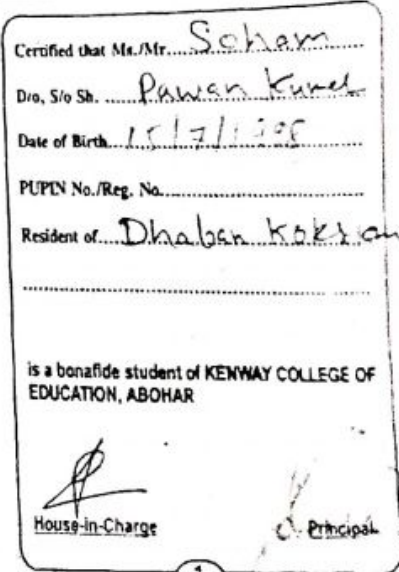 Certified that Ms./Mr. Soham
D/o, S/o Sh. Pawan
Date of Birth 15/7/
PUPIN No./Reg. No.
Resident of Dhaban Koksian
is a bonafide student of KENWAY COLLEGE OF
EDUCATION, ABOHAR
House-in-Charge Principal
1